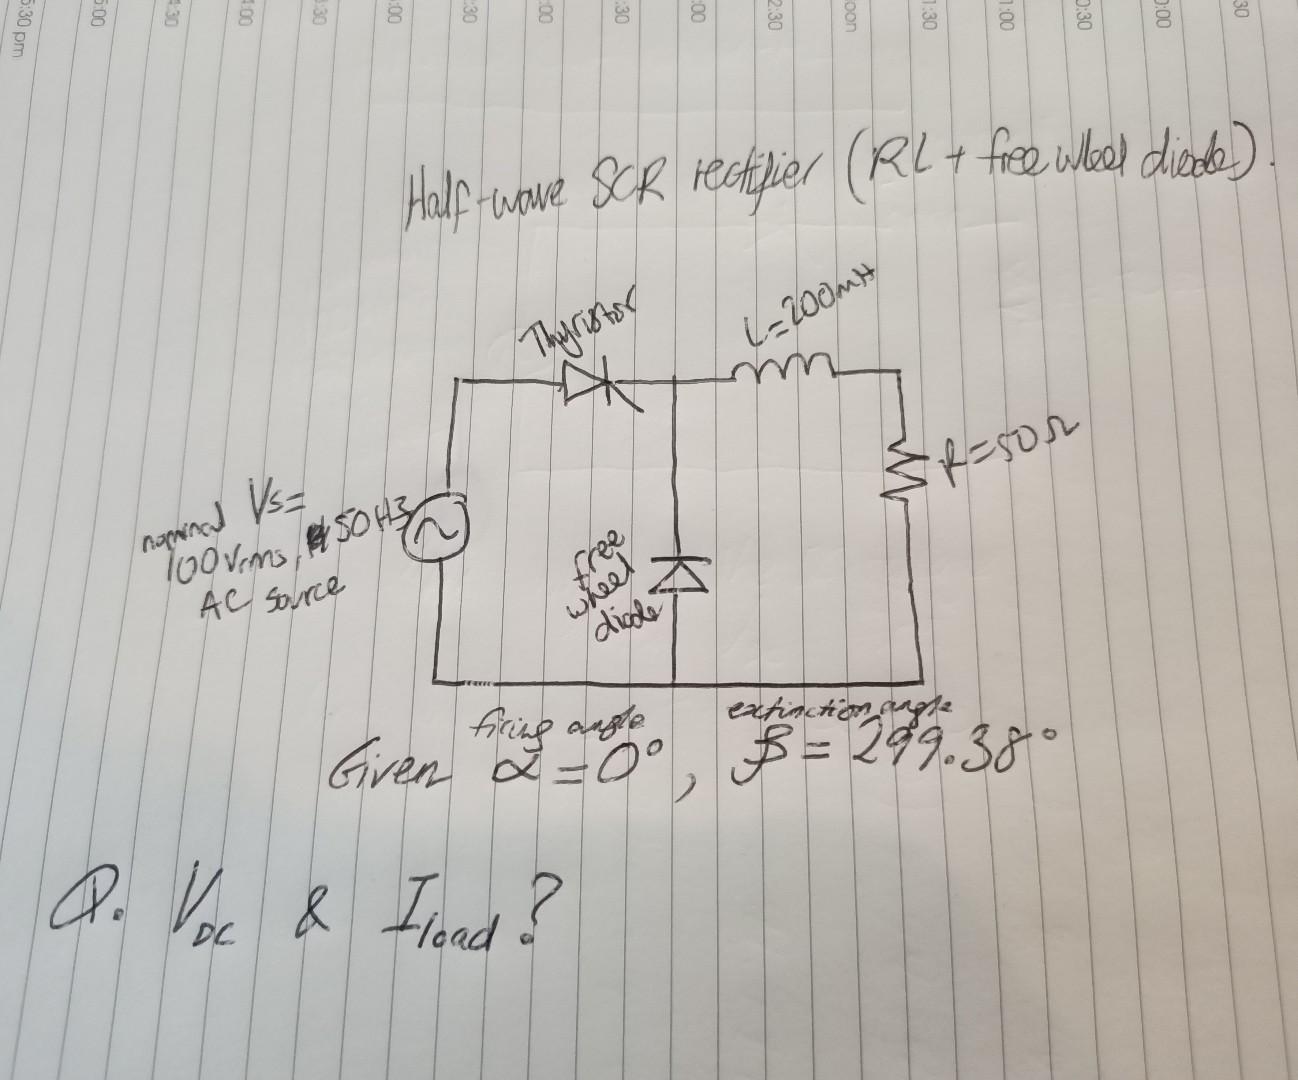 5:30 pm
5:00
4:30
4:00
3:30
:00
:30
:00
:30
:00
2:30
oon
1:30
1:00
0:30
0:00
30
Half-wave SCR rectifier (RL + free wheel diode).
Thyristor
L=200mH
R=50Ω
nominal Vs=
100Vrms, 50Hz
AC source
free
wheel
diode
firing angle
extinction angle
Given α=0°, β=299.38°
Q. VDC & Iload?